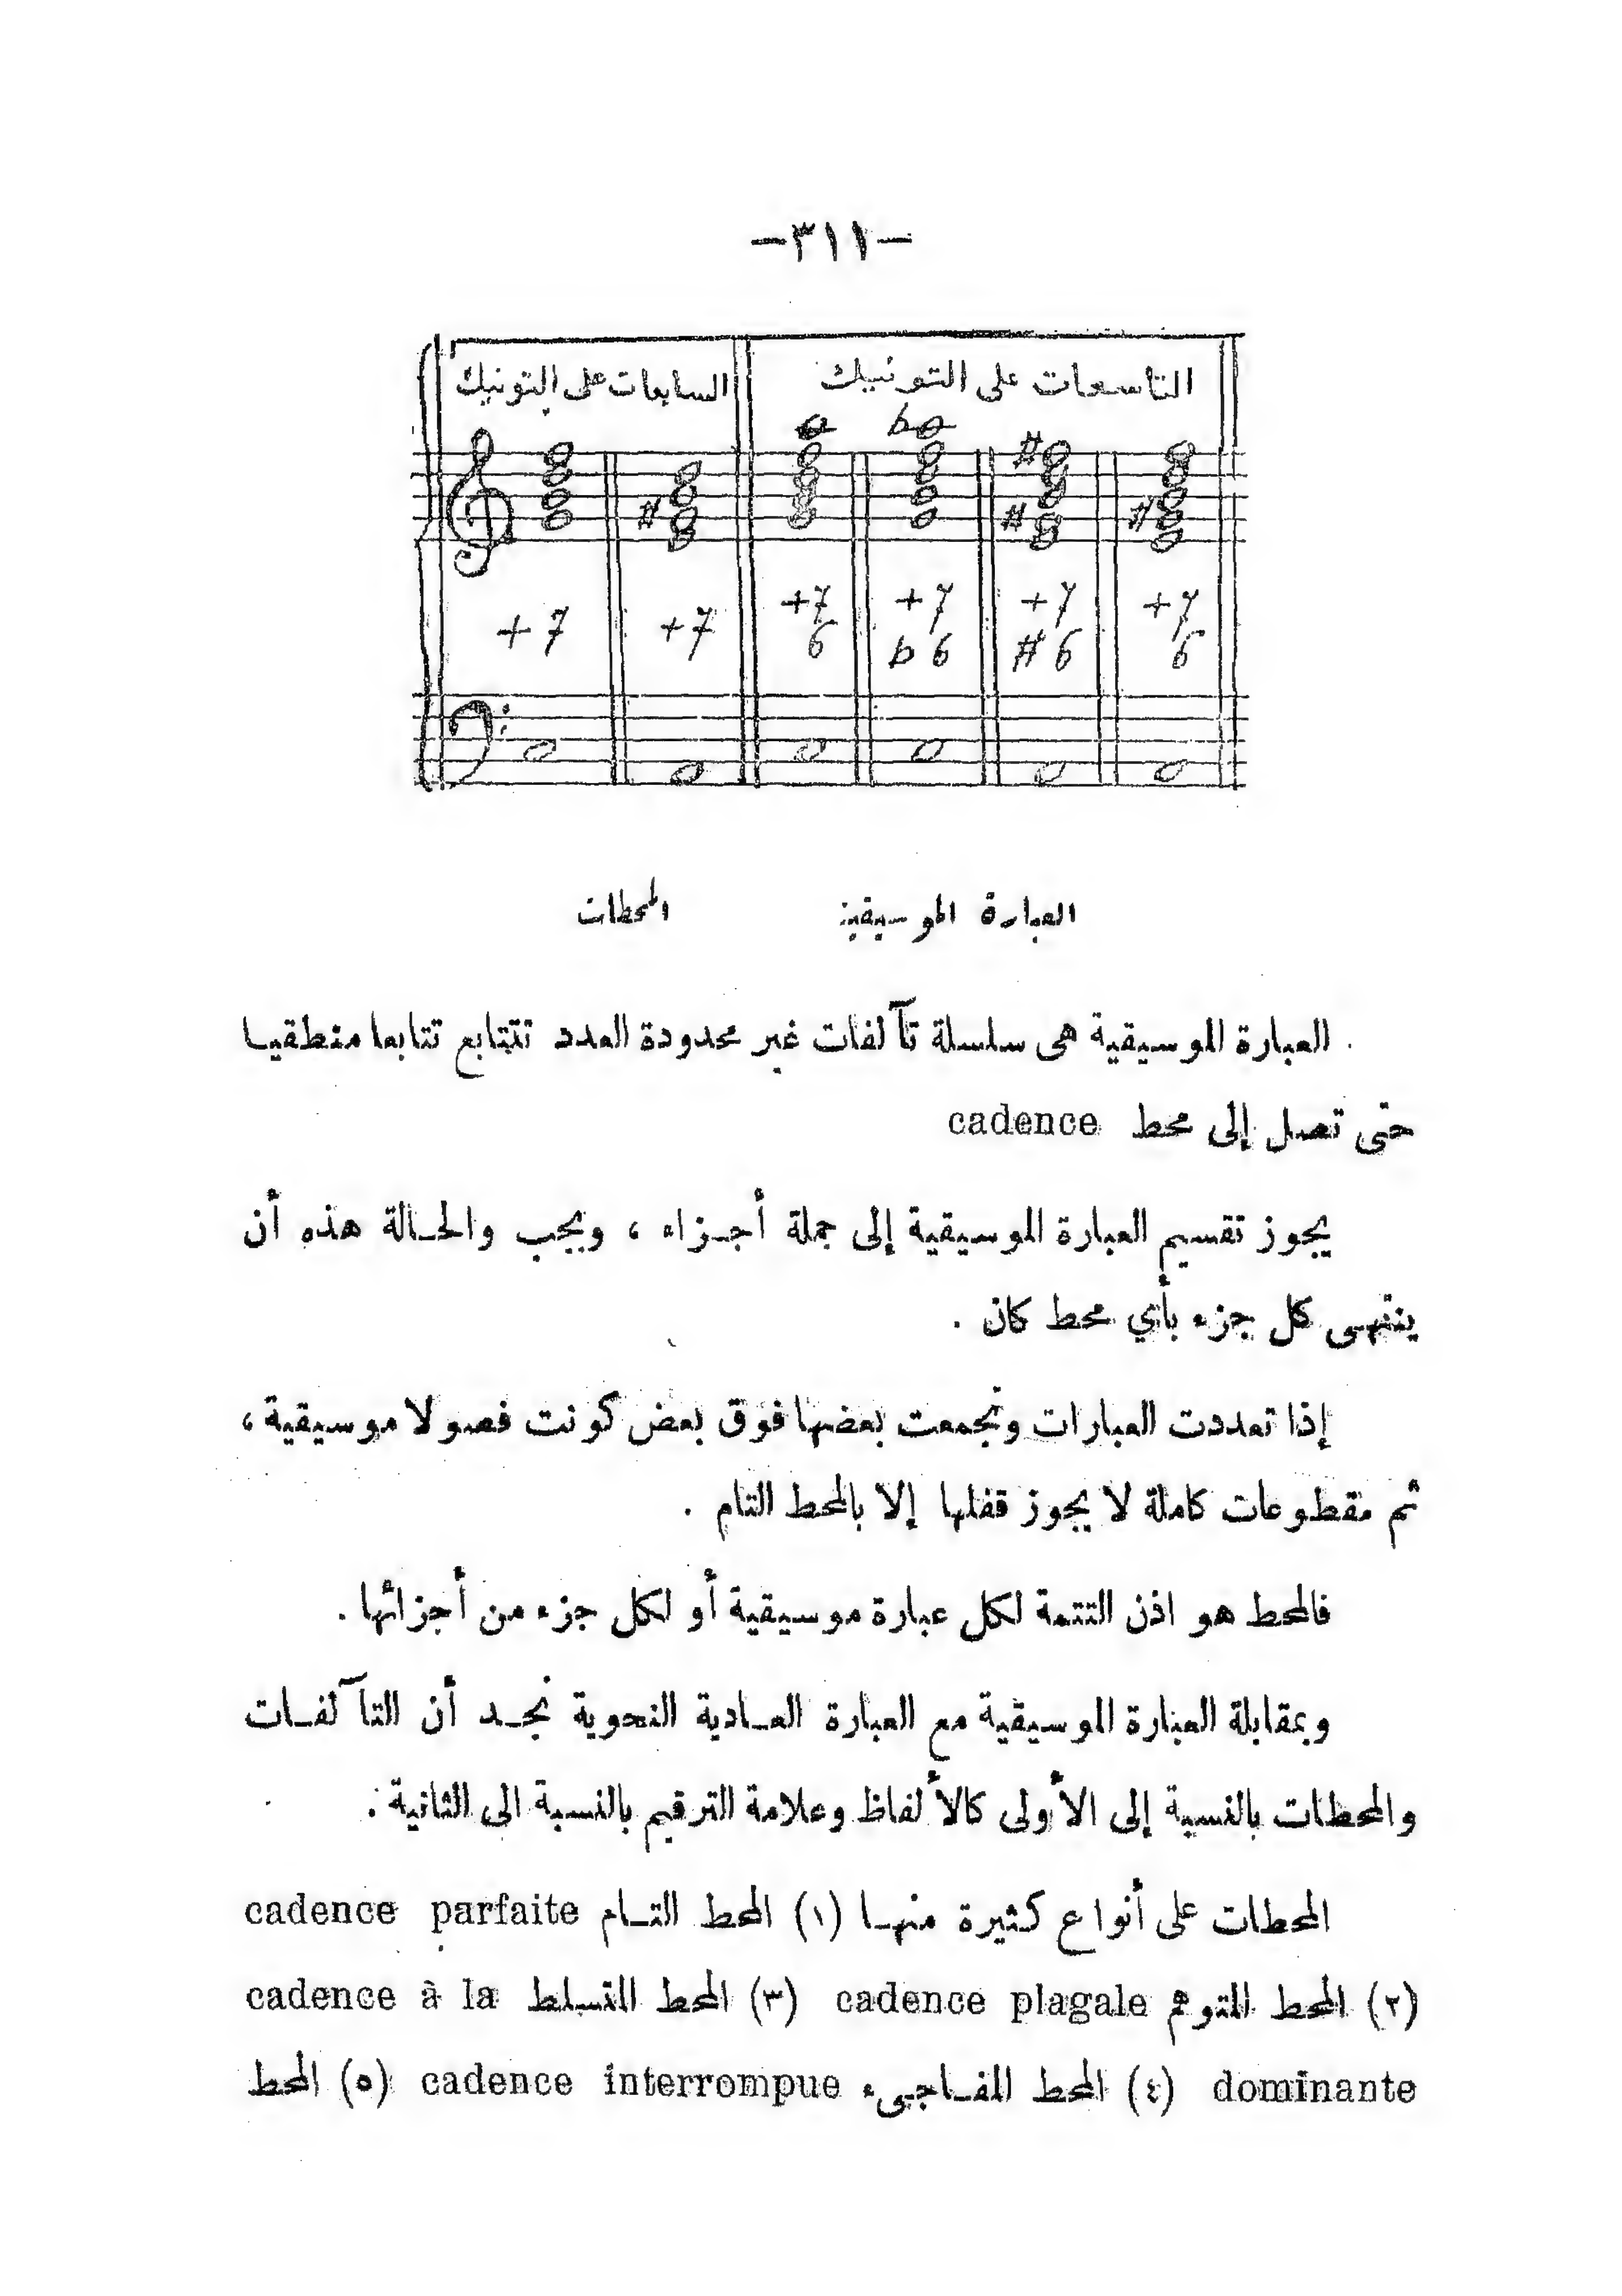 —٣١١—
السابعات على التونيك التاسعات على التونيك
b
# # # #
+7 +7 +7 +7 +7 +7
6 b6 #6 6
العبارة الموسيقية المحطات
العبارة الموسيقية هى سلسلة تآلفات غير محدودة العدد تتتابع تتابعا منطقيا
حتى تصل إلى محط cadence
يجوز تقسيم العبارة الموسيقية إلى جملة أجـزاء ، ويجب والحـالة هذه أن
ينتهـى كل جزء بأي محط كان .
إذا تعددت العبارات وتجمعت بعضها فوق بعض كونت فصولا موسيقية ،
ثم مقطوعات كاملة لا يجوز قفلها إلا بالمحط التام .
فالمحط هو اذن التتمة لكل عبارة موسيقية أو لكل جزء من أجزائها .
وبمقابلة العبارة الموسيقية مع العبارة العـادية النحوية نجـد أن التآلفـات
والمحطات بالنسبة إلى الأولى كالألفاظ وعلامة الترقيم بالنسبة الى الثانية .
المحطات على أنواع كثيرة منهـا (١) المحط التـام cadence parfaite
(٢) المحط المتوهم cadence plagale (٣) المحط المتسلط cadence à la
dominante (٤) المحط المفـاجىء cadence interrompue (٥) المحط